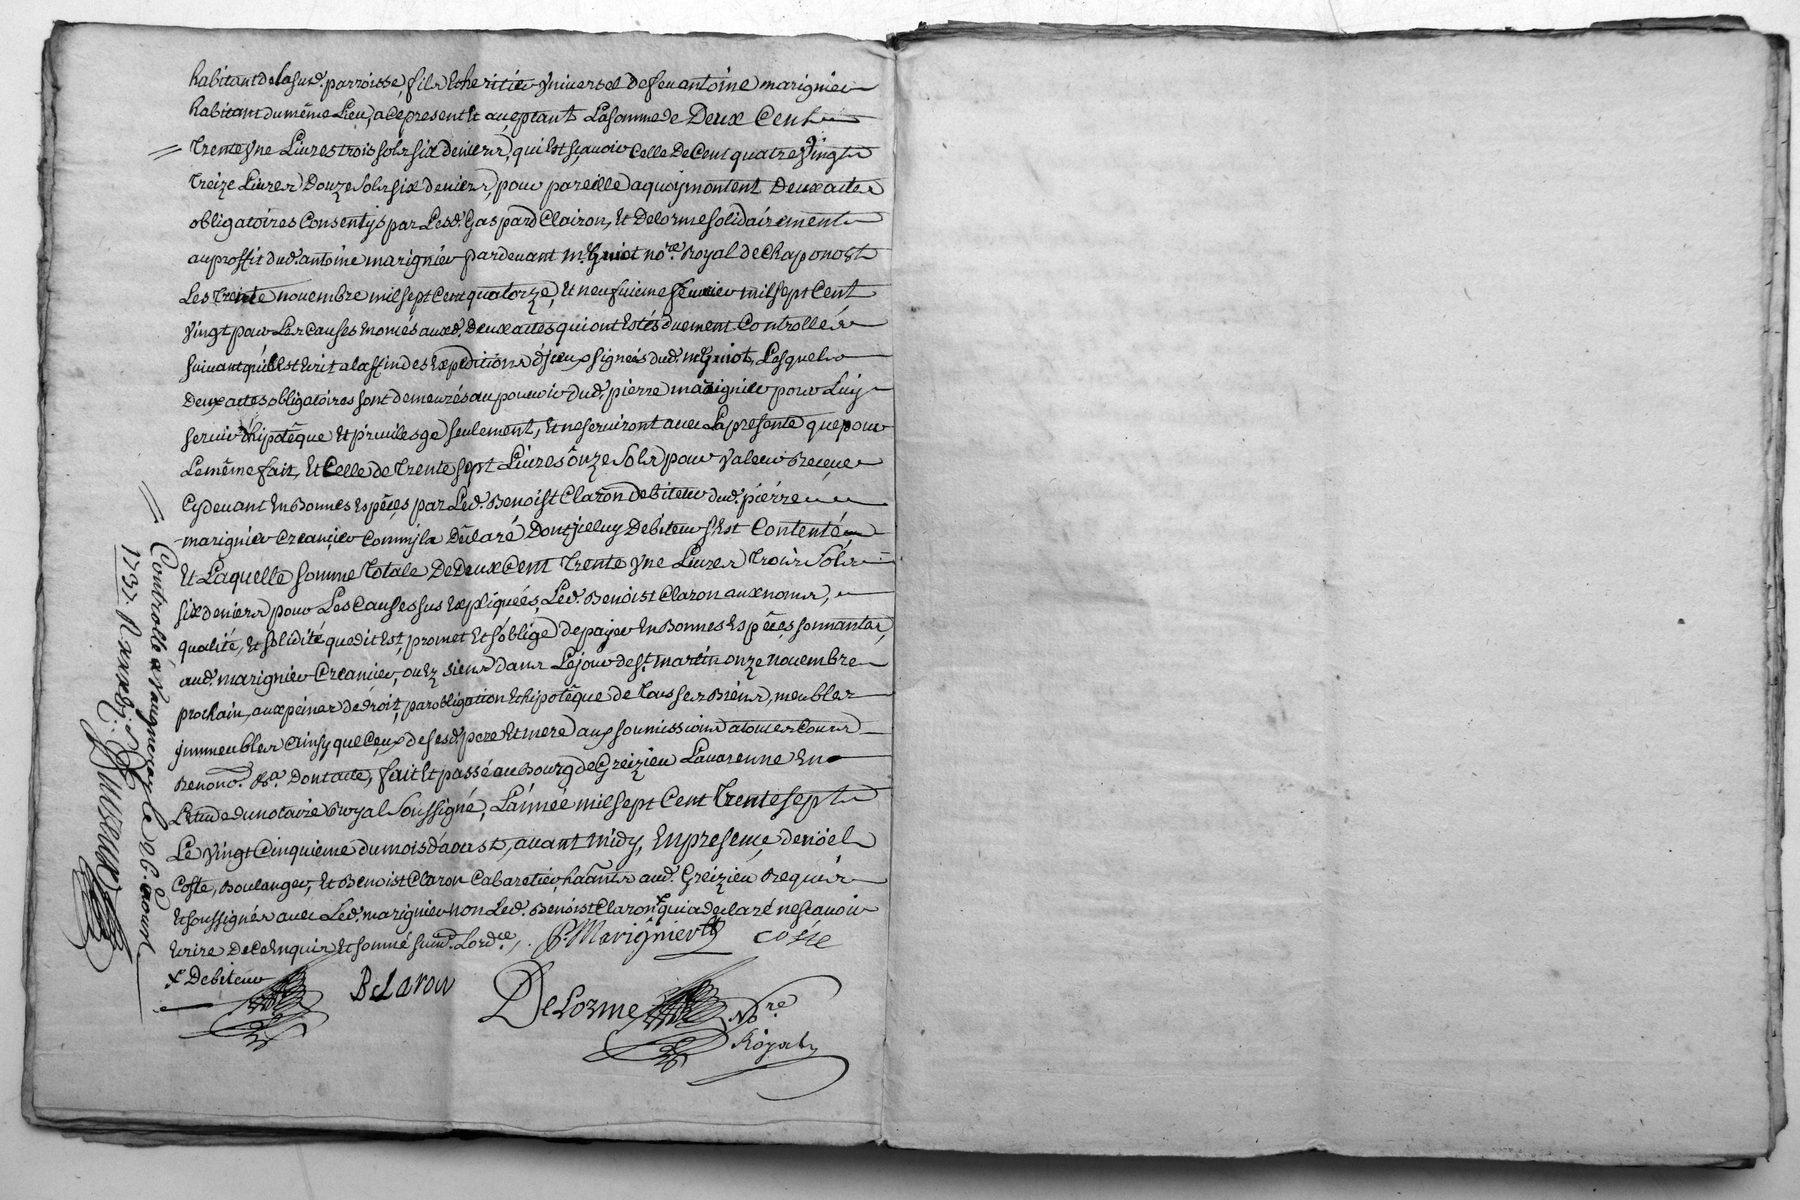 habitant de la sud. parroisse, fils et heritier universel de feu antoine marignier
habitant du même Lieu, a ce present et aceptant La somme de Deux Cent
Trente Vne Livres trois sols six deniers, qui est sçavoir celle De Cent quatre Vingts
Treize Livres Douze sols six deniers, pour pareille a quoy montent Deux actes
obligatoires Consentys par Lesd. Gaspard Clairon, Et Delorme solidairement
au proffit dud. antoine marignier pardevant me. Guiot nore. Royal de Chaponost
Les Trente novembre mil sept Cent quatorze, Et neufvieme fevrier mil sept Cent
Vingt pour Les causes enoncés auxd. Deux actes qui ont Estés duement Controllés
suivant qu'il Est Ecrit a la fin des Expeditions d'jceux signéés dud. me Guiot, Lesquels
Deux actes obligatoires sont demeurés au pouvoir dud. pierre marignier pour Luy
servir d'hipotêque Et privilesge seulement, Et ne serviront avec La presente que pour
Le même fait, Et Celle de Trente sept Livres onze Sols pour Valeur Reçeue
Cy devant En Bonnes Espêces par Led. Benoist Claron debiteur dud. pierre
marignier Creancier Comm'jl a Déclaré Dont jcelluy Debiteur s'Est Contenté
Et Laquelle somme Totale De Deux Cent Trente Vne Livres Trois Sols
six deniers pour Les Causes sus Expliquéés, Led. Benoist Claron aux noms,
qualité, Et solidité que dit Est, promet Et s'oblige de payer En Bonnes Espêces sonnantes,
aud. marignier Creancier, ou Ez siens dans Le jour de st. martin onze novembre
prochain, aux peines de droit, par obligation Et hipotêque de Tous ses Biens, meubles
jmmeubles Ainsy que Ceux de sesd. pere Et mere aux soumissions a toutes Cours
Renono. &a. Dont acte, fait Et passé au Bourg de Greizieu Lavarenne En
L'etude du notaire Royal Soussigné, L'année mil sept Cent Trente sept
Le Vingt Cinquieme du mois d'aoust, avant midy, En presence de noel
Coste, Boulanger, Et Benoist Claron Cabaretier, haants aud. Greizieu Requis
Et soussignés avec Led. marignier non Led. Benoist Claron x qui a declaré ne sçavoir
Ecrire De ce Enquis Et sommé suivt. L'ordce.
P. Marignier Coste
x Debiteur
B Claron
DeLorme Nore.
Royal
Controllé à Vaugneray le 26. aoust
1737. R